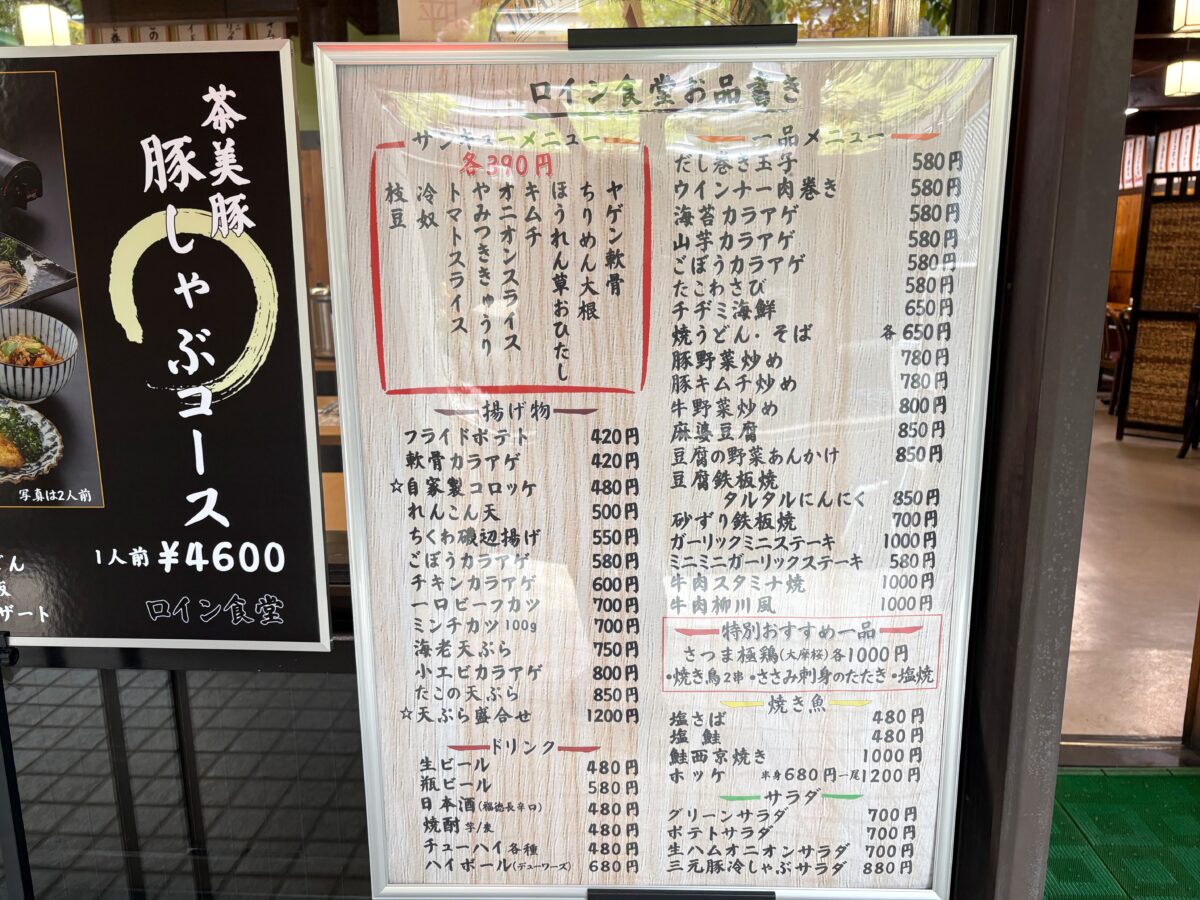 茶美豚
豚しゃぶコース
写真は2人前
1人前 ¥4600
ロイン食堂
ロイン食堂お品書き
サンキューメニュー
各390円
ヤゲン軟骨
ちりめん大根
ほうれん草おひたし
キムチ
オニオンスライス
やみつききゅうり
トマトスライス
冷奴
枝豆
揚げ物
フライドポテト 420円
軟骨カラアゲ 420円
☆自家製コロッケ 480円
れんこん天 500円
ちくわ磯辺揚げ 550円
ごぼうカラアゲ 580円
チキンカラアゲ 600円
一口ビーフカツ 700円
ミンチカツ100g 700円
海老天ぷら 750円
小エビカラアゲ 800円
たこの天ぷら 850円
☆天ぷら盛合せ 1200円
ドリンク
生ビール 480円
瓶ビール 580円
日本酒(福徳長辛口) 480円
焼酎 芋/麦 480円
チューハイ各種 480円
ハイボール(デューワーズ) 680円
一品メニュー
だし巻き玉子 580円
ウインナー肉巻き 580円
海苔カラアゲ 580円
山芋カラアゲ 580円
ごぼうカラアゲ 580円
たこわさび 580円
チヂミ海鮮 650円
焼うどん・そば 各650円
豚野菜炒め 780円
豚キムチ炒め 780円
牛野菜炒め 800円
麻婆豆腐 850円
豆腐の野菜あんかけ 850円
豆腐鉄板焼
タルタルにんにく 850円
砂ずり鉄板焼 700円
ガーリックミニステーキ 1000円
ミニミニガーリックステーキ 580円
牛肉スタミナ焼 1000円
牛肉柳川風 1000円
特別おすすめ一品
さつま極鶏(大摩桜)各1000円
・焼き鳥2串・ささみ刺身のたたき・塩焼
焼き魚
塩さば 480円
塩鮭 480円
鮭西京焼き 1000円
ホッケ 半身680円一尾1200円
サラダ
グリーンサラダ 700円
ポテトサラダ 700円
生ハムオニオンサラダ 700円
三元豚冷しゃぶサラダ 880円